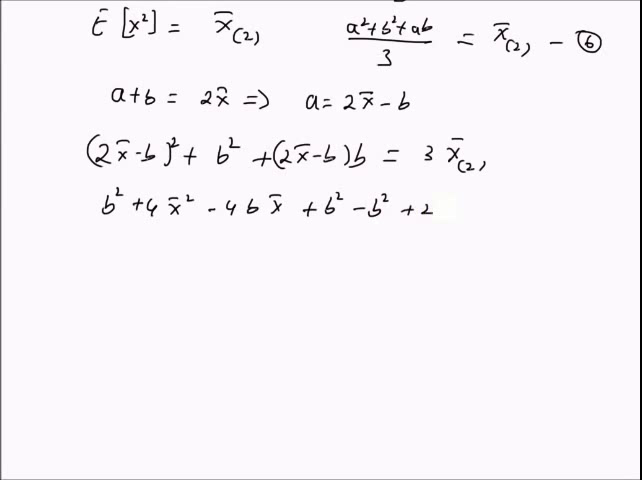 E[x²] = x̄₍₂₎   (a²+b²+ab)/3 = x̄₍₂₎ – ⑥
a+b = 2x̄ => a = 2x̄ – b
(2x̄–b)² + b² + (2x̄–b)b = 3 x̄₍₂₎
b² + 4x̄² - 4bx̄ + b² – b² + 2